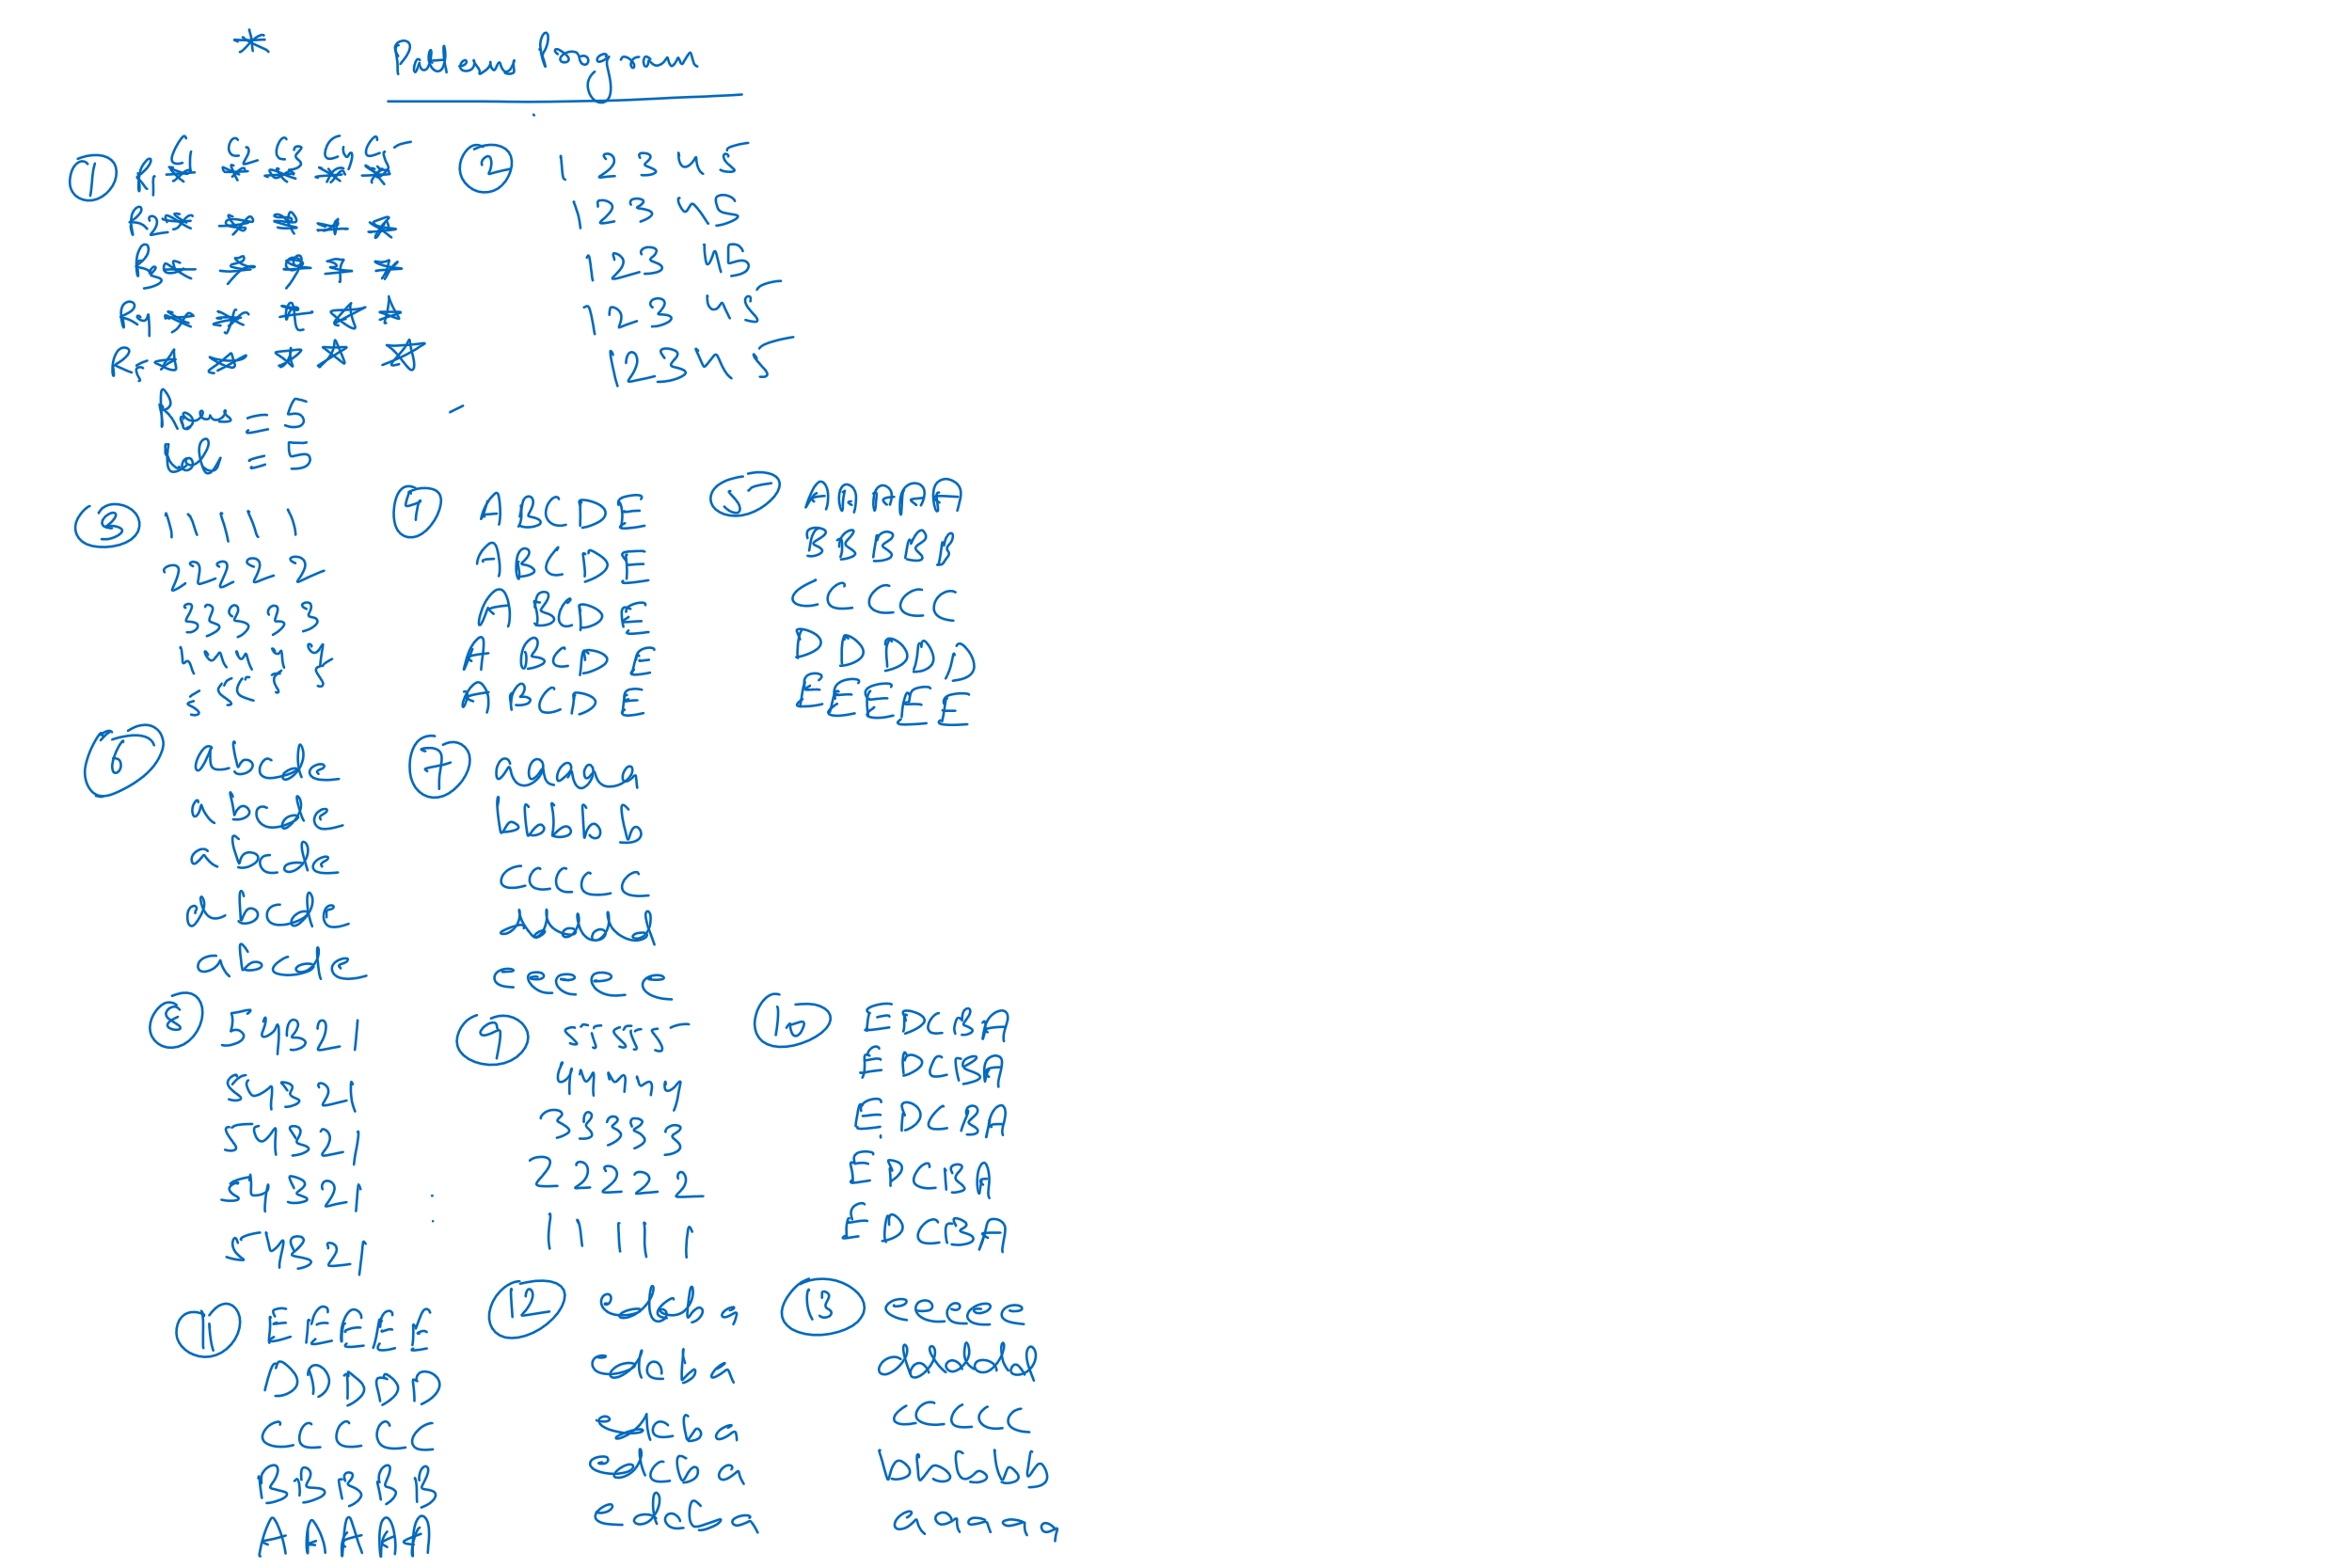 * Pattern Program
① C1 C2 C3 C4 C5
R1 * * * * *
R2 * * * * *
R3 * * * * *
R4 * * * * *
R5 * * * * *
Rows = 5
Col = 5
② 1 2 3 4 5
1 2 3 4 5
1 2 3 4 5
1 2 3 4 5
1 2 3 4 5
③ 1 1 1 1 1
2 2 2 2 2
3 3 3 3 3
4 4 4 4 4
5 5 5 5 5
④ A B C D E
A B C D E
A B C D E
A B C D E
A B C D E
⑤ A A A A A
B B B B B
C C C C C
D D D D D
E E E E E
⑥ a b c d e
a b c d e
a b c d e
a b c d e
a b c d e
⑦ a a a a a
b b b b b
c c c c c
d d d d d
e e e e e
⑧ 5 4 3 2 1
5 4 3 2 1
5 4 3 2 1
5 4 3 2 1
5 4 3 2 1
⑨ 5 5 5 5 5
4 4 4 4 4
3 3 3 3 3
2 2 2 2 2
1 1 1 1 1
⑩ E D C B A
E D C B A
E D C B A
E D C B A
E D C B A
⑪ E E E E E
D D D D D
C C C C C
B B B B B
A A A A A
⑫ e d c b a
e d c b a
e d c b a
e d c b a
e d c b a
⑬ e e e e e
d d d d d
c c c c c
b b b b b
a a a a a